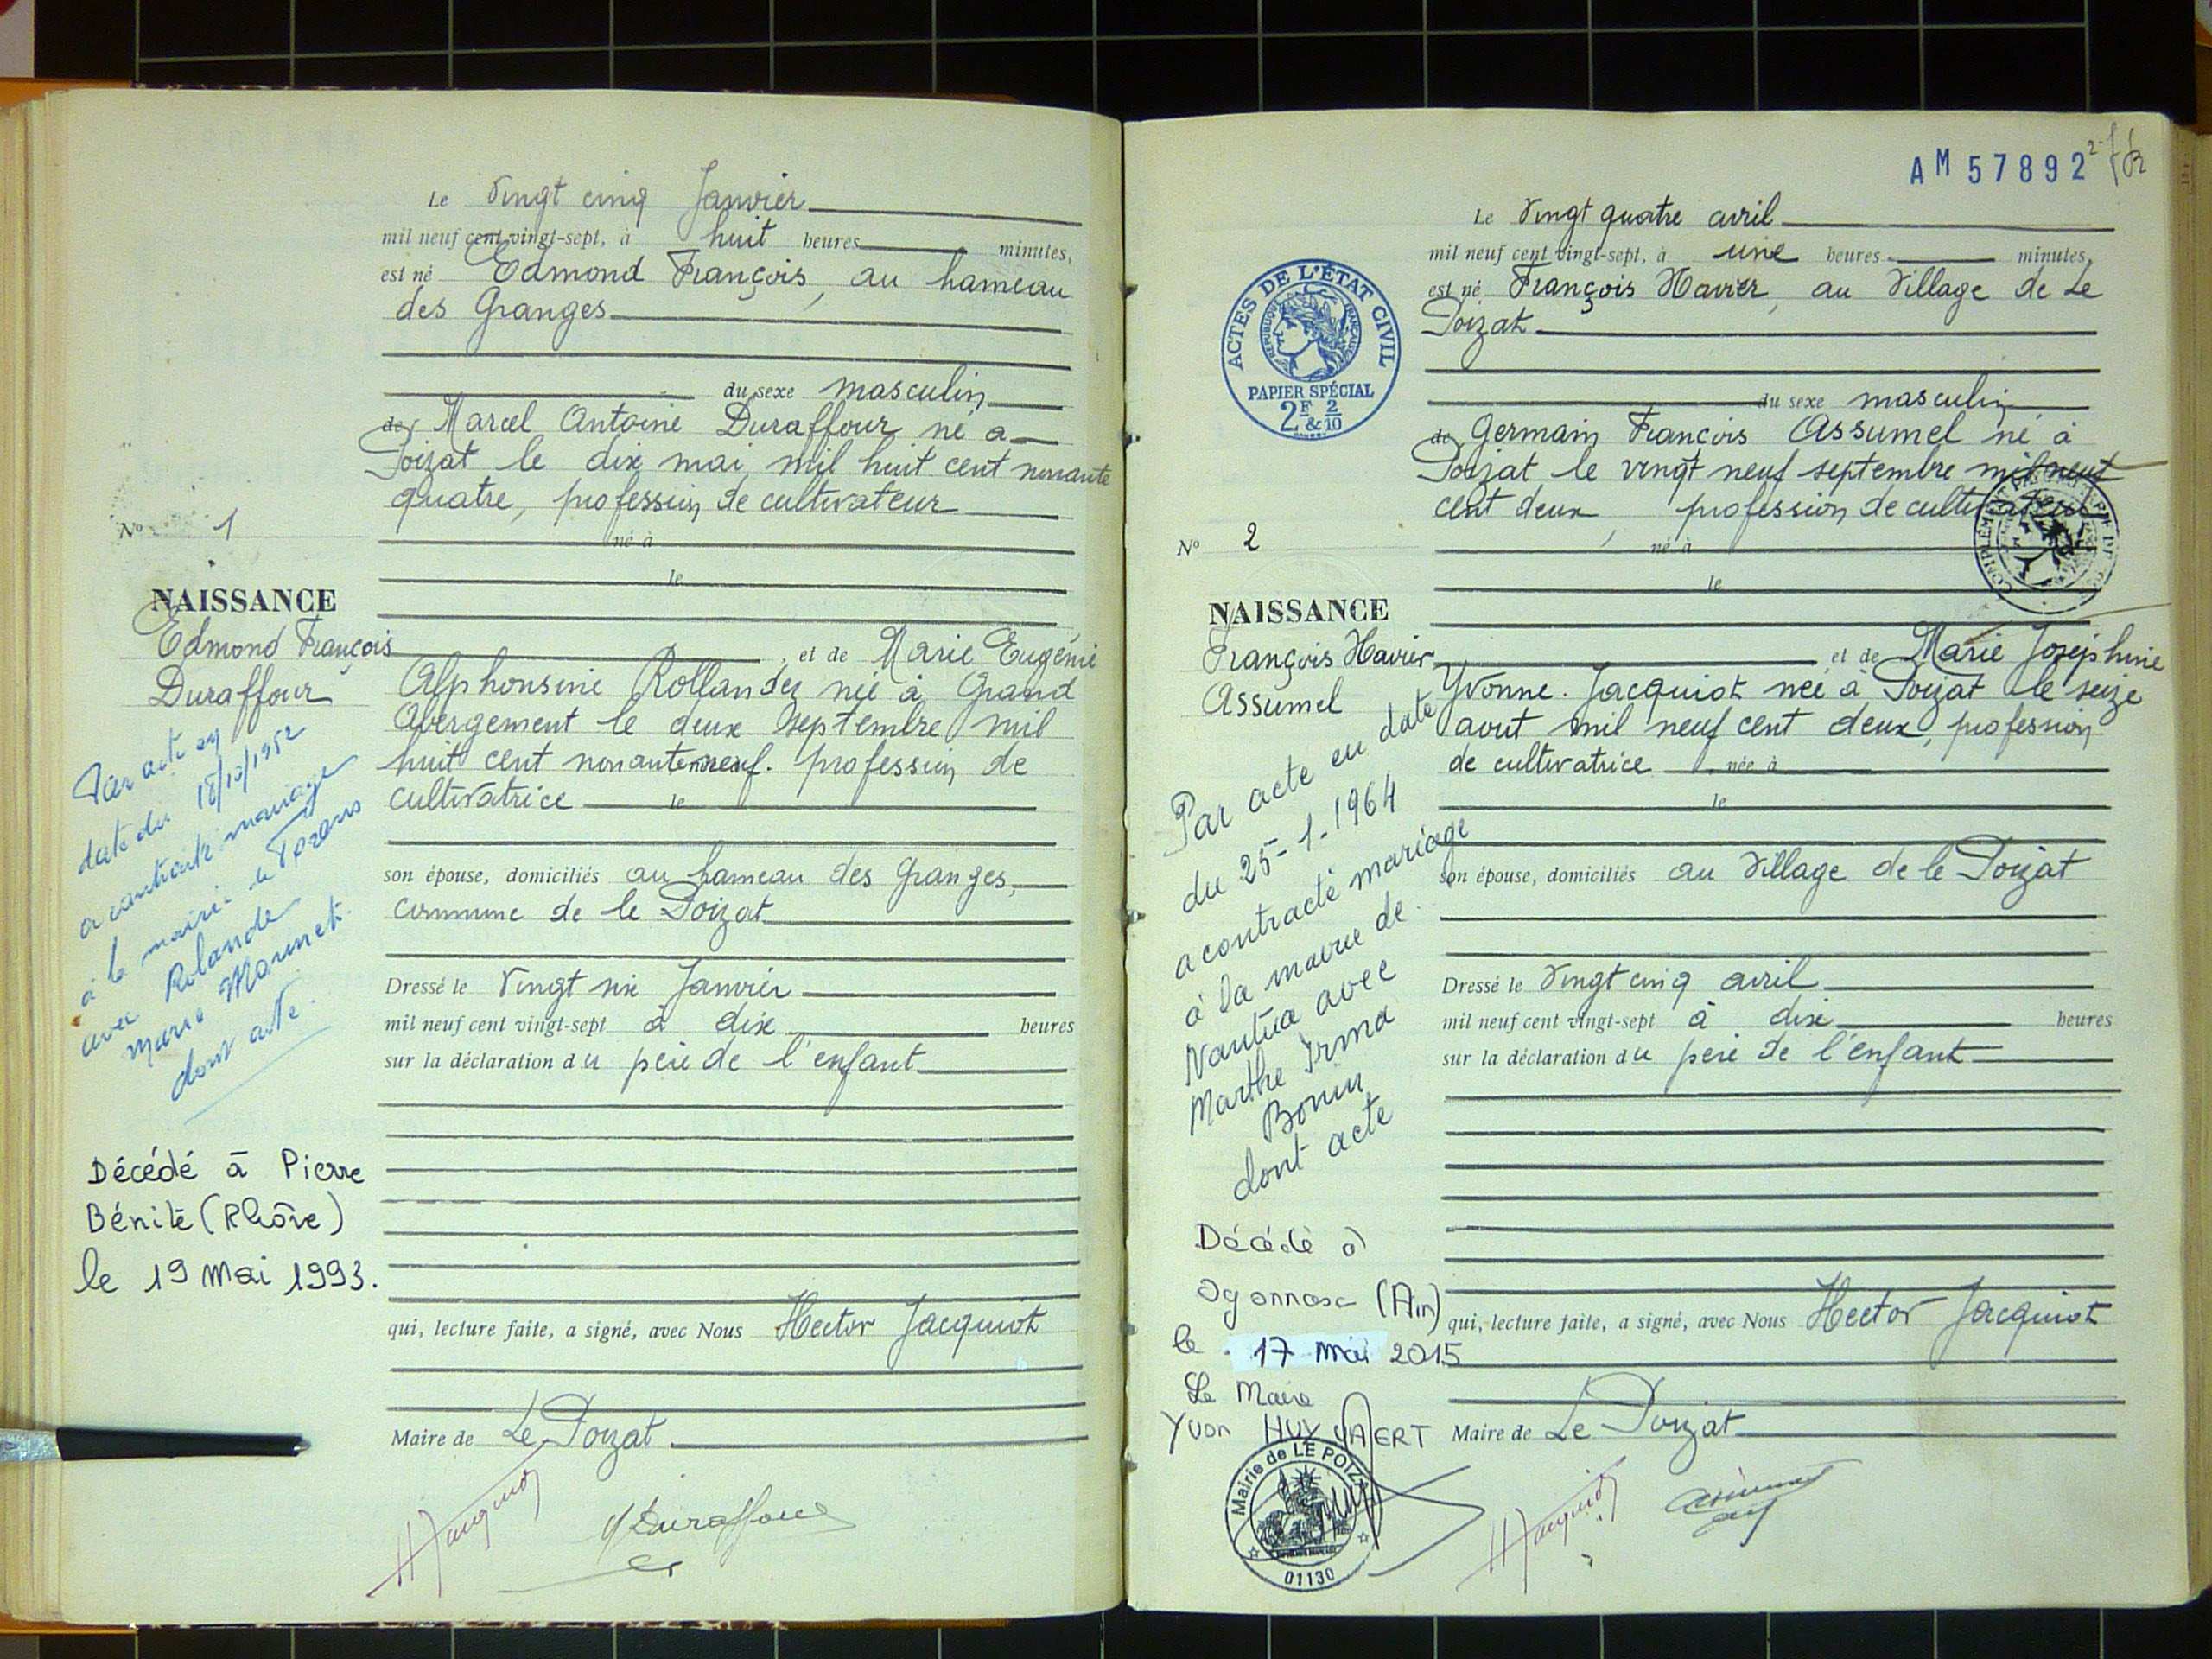 Le Vingt cinq Janvier
mil neuf cent vingt-sept, à huit heures minutes,
est né Edmond François, au hameau
des Granges
du sexe masculin
de Marcel Antoine Duraffour né a
Poizat le dix mai mil huit cent nonante
quatre, profession de cultivateur
né à
le
No 1
NAISSANCE
Edmond François
Duraffour
et de Marie Eugénie
Alphonsine Rollandez née à Grand
Abergement le deux Septembre mil
huit cent nonante neuf. profession de
cultivatrice le
son épouse, domiciliés au hameau des Granges,
commune de le Poizat
Dressé le Vingt six Janvier
mil neuf cent vingt-sept à dix heures
sur la déclaration du père de l'enfant
qui, lecture faite, a signé, avec Nous Hector Jacquiot
Maire de Le Poizat
H Jacquiot
Duraffour
Par acte en
date du 18/10/1952
a contracté mariage
à la mairie de
avec Rolande
Marie
dont acte.
Décédé à Pierre
Bénite (Rhône)
le 19 Mai 1993.
AM 57892
Le Vingt quatre avril
mil neuf cent vingt-sept, à une heures minutes,
est né François Xavier, au Village de Le
Poizat
ACTES DE L'ÉTAT CIVIL
RÉPUBLIQUE FRANÇAISE
PAPIER SPÉCIAL
2F & 2/10
du sexe masculin
de Germain François Assumel né à
Poizat le vingt neuf septembre mil neuf
cent deux, profession de cultivateur
né à
le
No 2
NAISSANCE
François Xavier
Assumel
et de Marie Joséphine
Yvonne. Jacquiot née à Poizat le seize
aout mil neuf cent deux, profession
de cultivatrice née à
le
son épouse, domiciliés au Village de le Poizat
Dressé le Vingt cinq avril
mil neuf cent vingt-sept à dix heures
sur la déclaration du père de l'enfant
qui, lecture faite, a signé, avec Nous Hector Jacquiot
Maire de Le Poizat
H Jacquiot
Par acte en date
du 25-1-1964
a contracté mariage
à la mairie de
Nantua avec
Marthe Irma
Bonin
dont acte
Décédé à
Oyonnax (Ain)
le 17 mai 2015
Le Maire
Yvon HUYVAERT
Mairie de LE POIZAT
01130